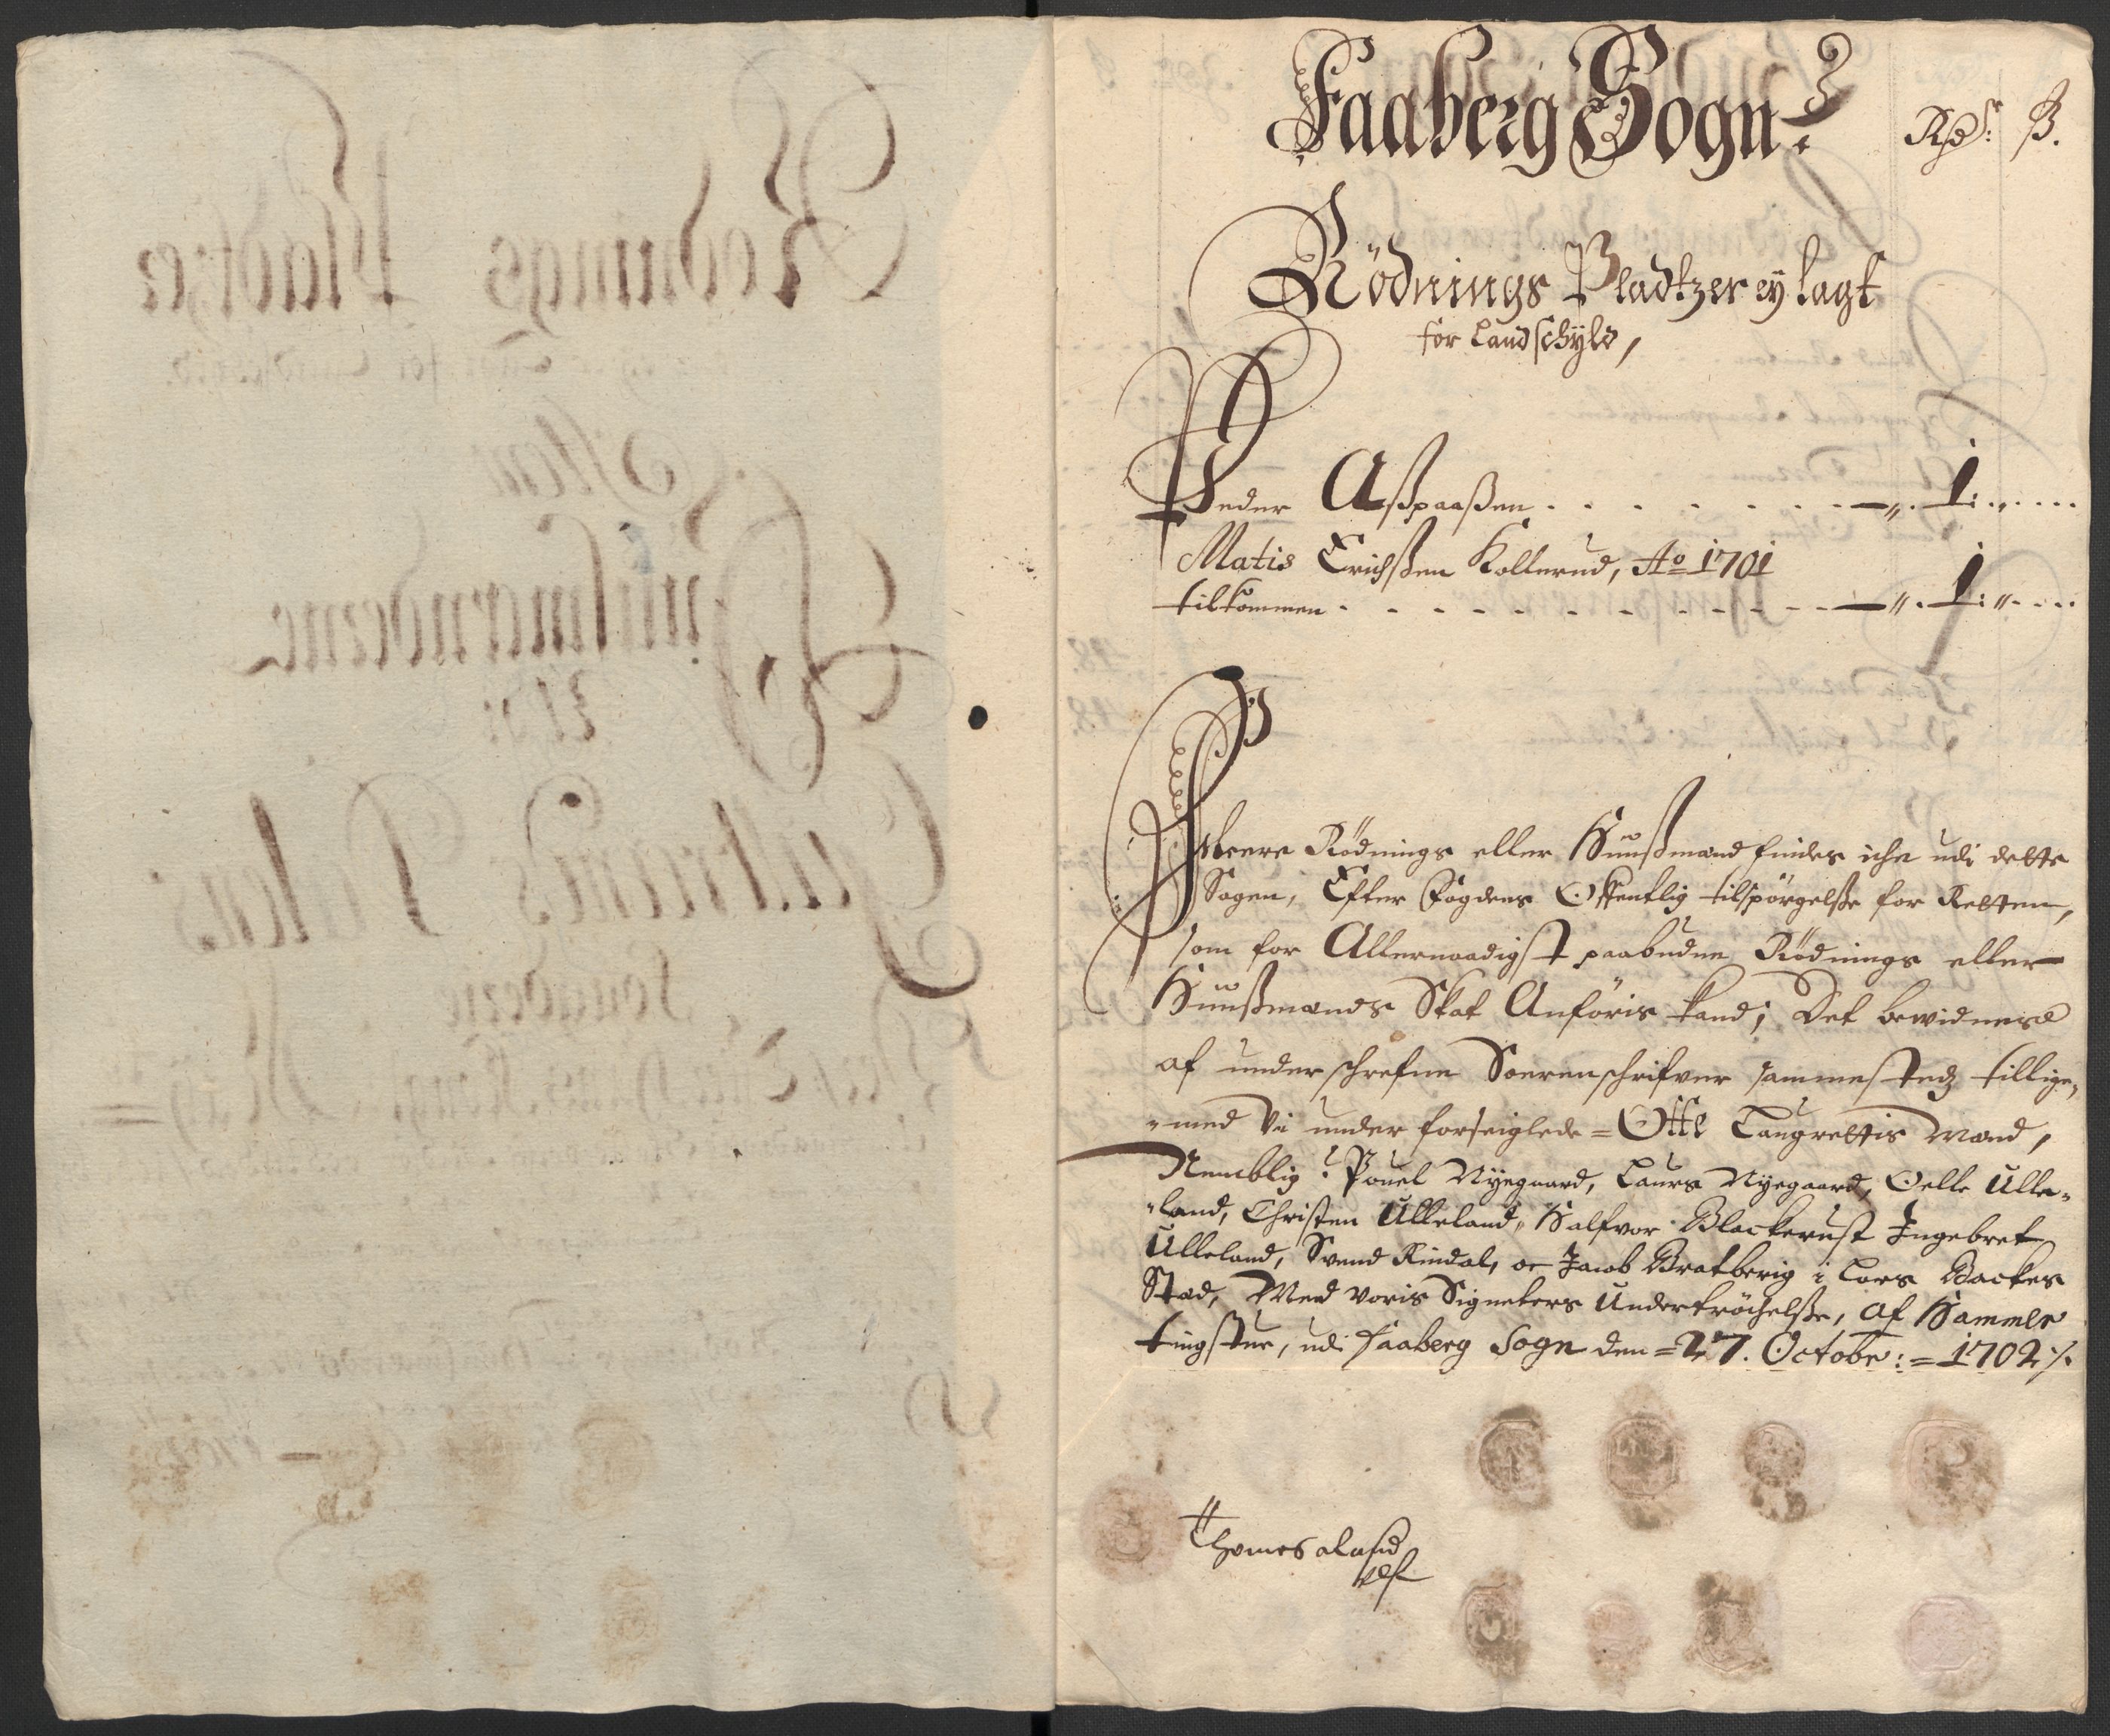 Faaberg Sogn
Rdr: ß.
Rödnings Pladtzer ey lagt
for Landschyld,
Peder Aßpaaßen . . . . . . . — „ . 1 : „ . . . .
Matis Erichßen Kollerud, Ao 1701
tilkommen . . . . . . . — „ . 1 : „ . . . .
Meere Rödnings eller Huußmænd findes iche udi dette
Sogen, Efter Fogdens Offentlig tilspörgelße for Retten,
som for Allernaadigst paabudne Rödnings eller
Huußmænds Skat Anföris kand; Det bewidnes
af underschrefne Sorenschrifver sammestedz tillige„
„med Vi under forseiglede = Otte Laugrettis Mænd,
Nemblig: Pouel Nyegaard, Laurs Nyegaard, Oelle Ulle„
„land, Christen Ulleland, Halfvor Blackerust Ingebret
Ulleland, Svend Rindal, oc Jacob Bratberig i Lars Backes
Stæd, Med voris Signeters Undertröchelße, af Hammer
tingstue, udi Faaberg Sogn den = 27. Octobr: = 1702 ./.
Thomes